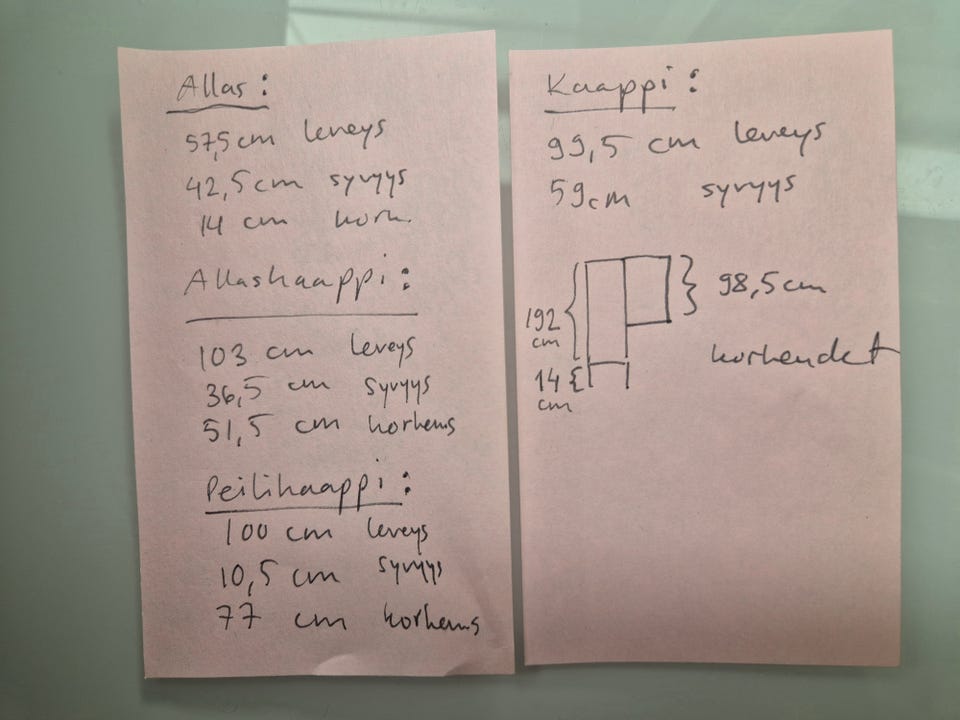 Allas:
57,5cm leveys
42,5cm syvyys
14 cm kork.
Allaskaappi:
103 cm leveys
36,5 cm syvyys
51,5 cm korkeus
Peilikaappi:
100 cm leveys
10,5 cm syvyys
77 cm korkeus
Kaappi:
99,5 cm leveys
59cm syvyys
98,5cm
192
cm
korkeudet
14
cm